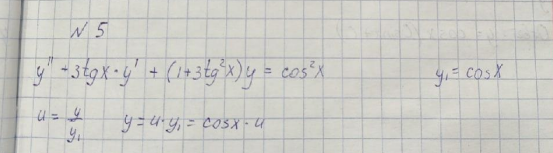 N 5
y'' + 3tgx · y' + (1+3tg²x)y = cos²x y₁ = cosx
u = y/y₁ y = u · y₁ = cosx · u